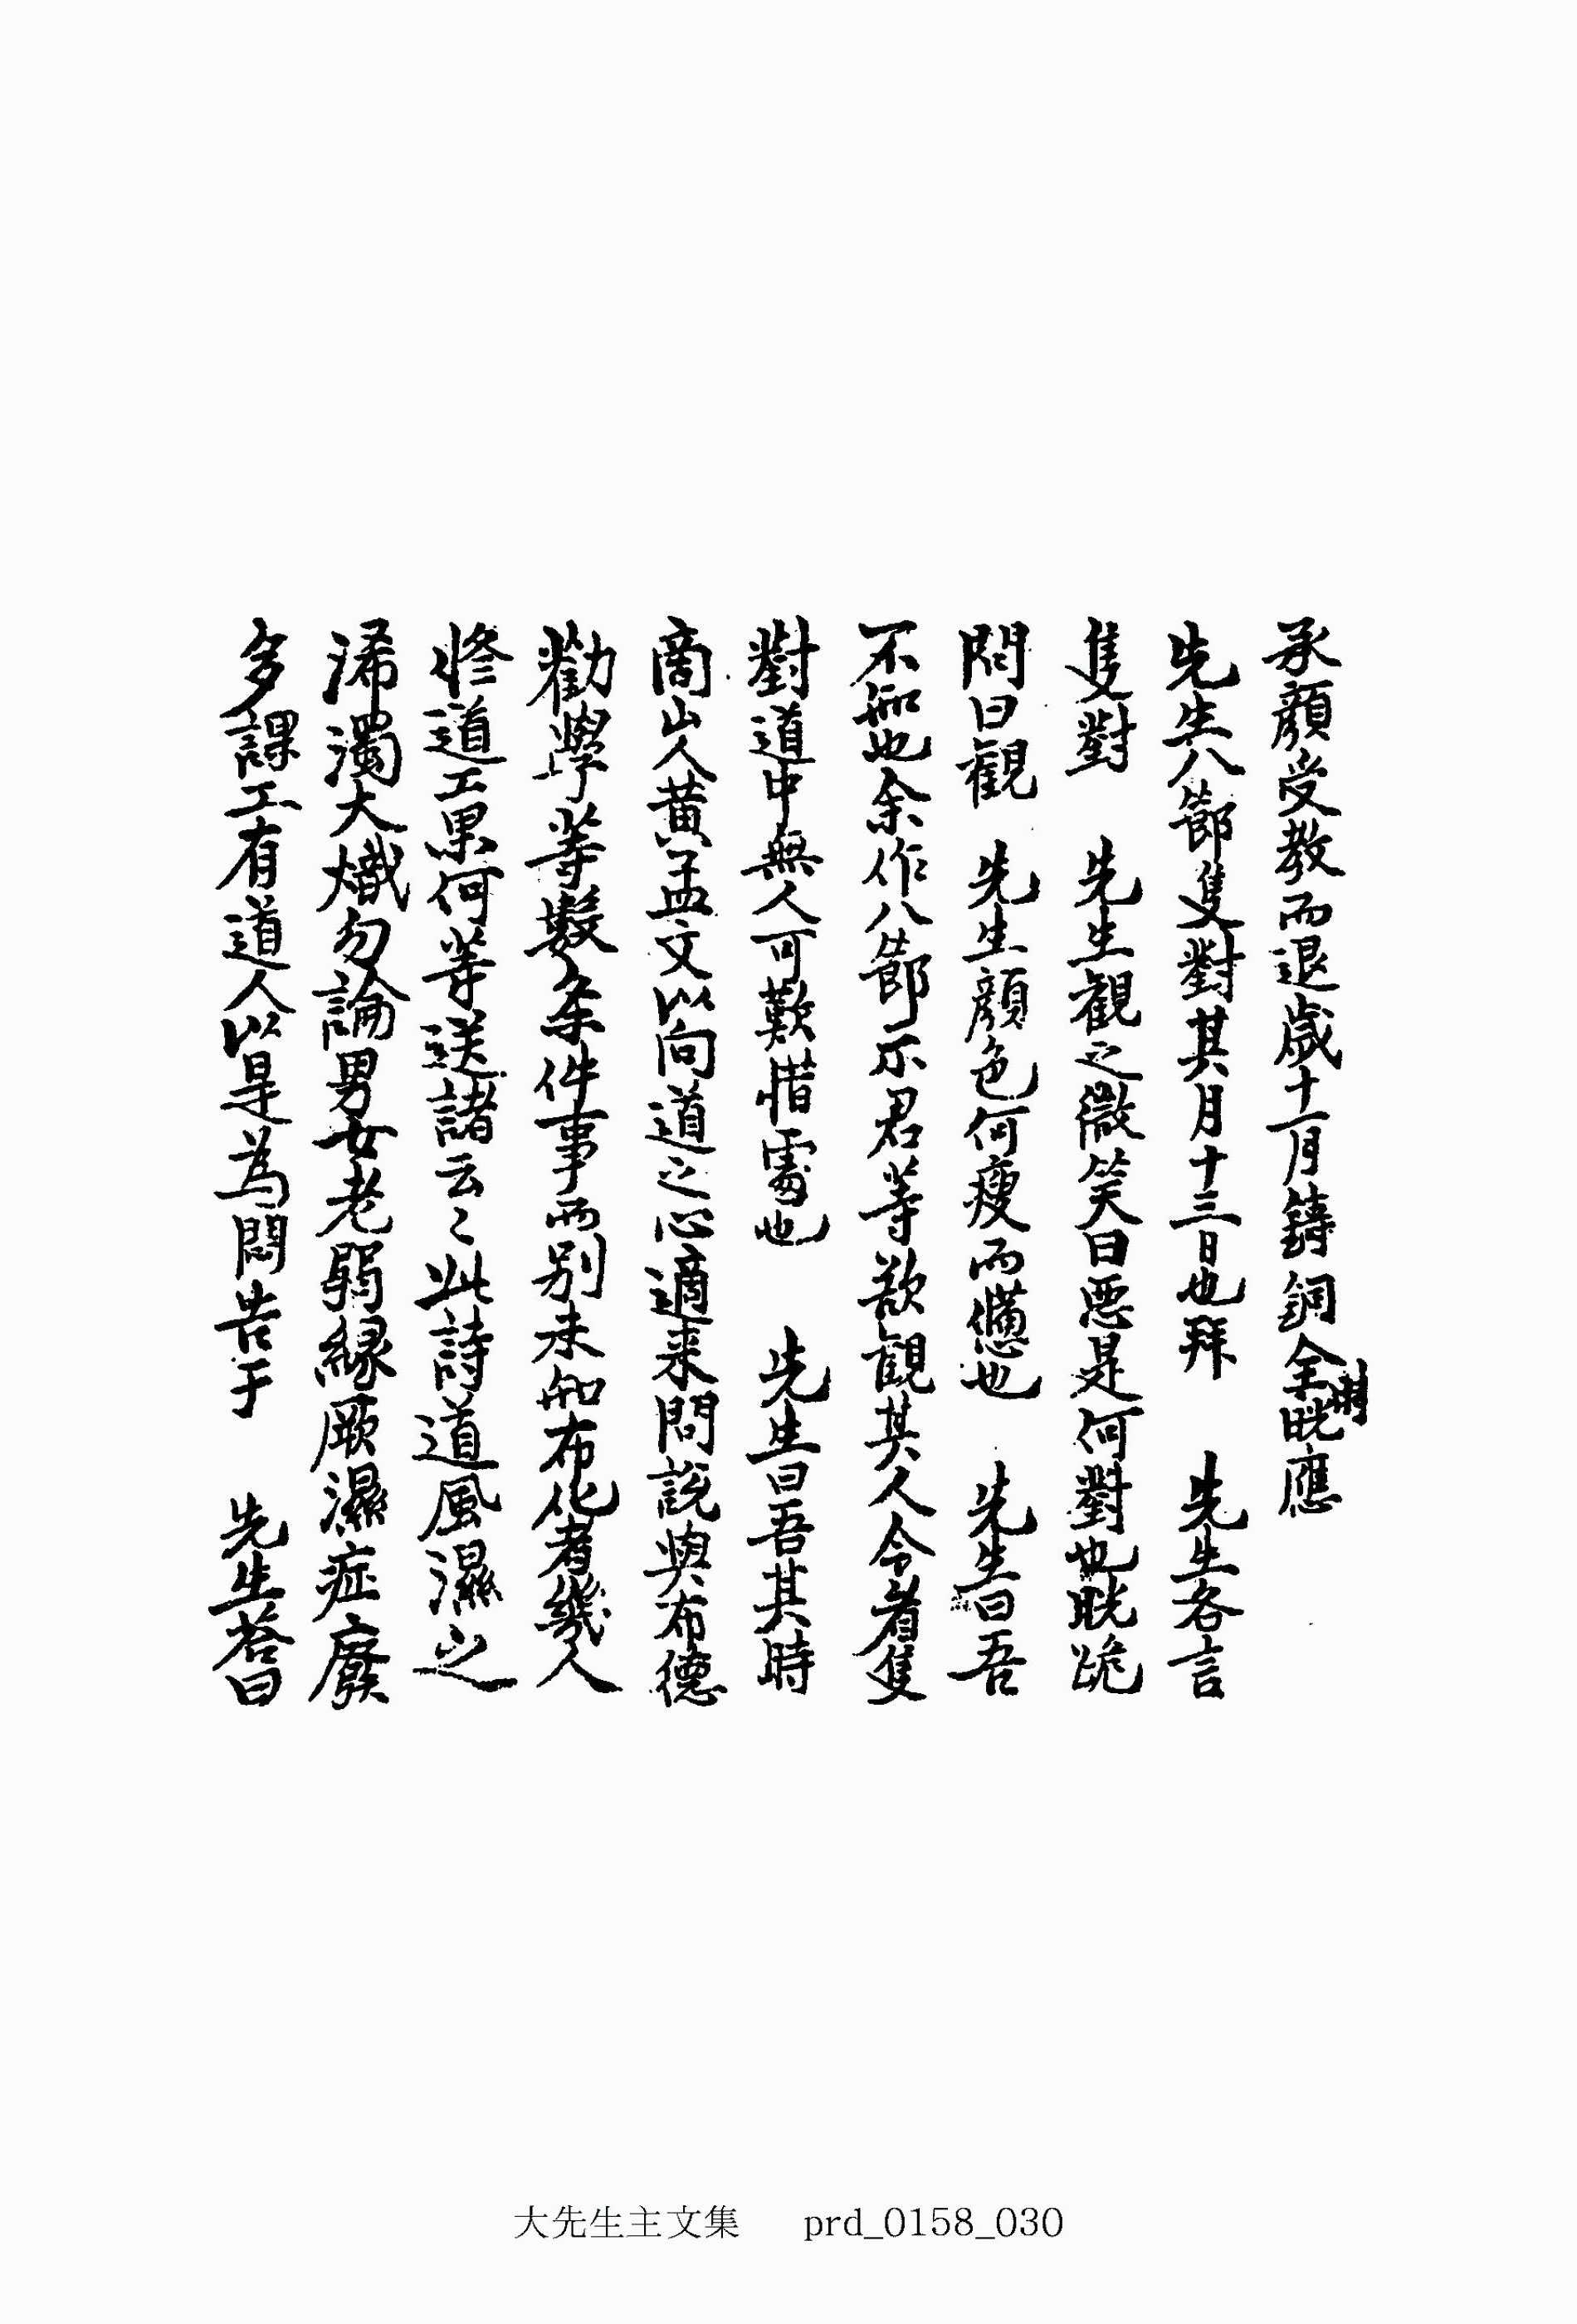 承顔受教而退歳十一月鑄銅全晄應
先生八節隻對其月十三日也拜 先生各言
隻對 先生觀之微笑曰悪是何對也晄跪
問曰觀 先生顔色何瘦而憊也 先生曰吾
不知也余作八節示君等欲觀其人今看隻
對道中無人可歎惜處也 先生曰吾其時
商山人黃孟文以向道之心適来問說與布德
勸學等數条件事而別未知布化者幾人
修道工果何等送諸云〻此詩道風濕之
浠濁大熾勿論男女老弱縁厥濕症廢
多課工有道人以是為悶告于 先生答曰
大先生主文集 prd_0158_030